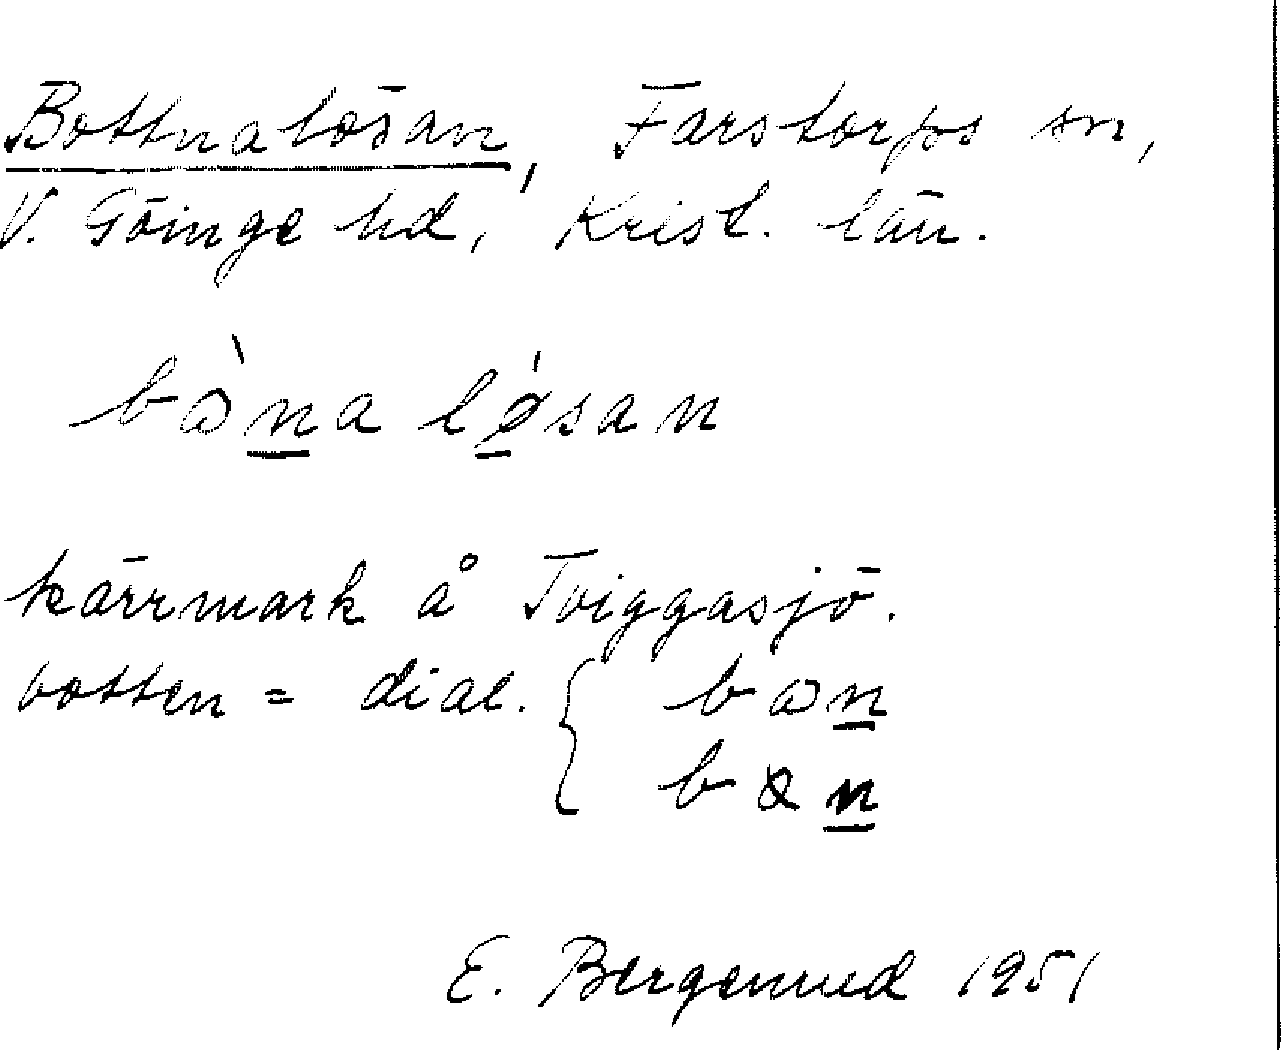 Bottnalösan, Farstorps sn,
V. Göinge hd, Krist. län.
bɔ̀n̲a lǿ̲san
kärrmark å Tviggasjö.
botten = dial. { bɔn̲
bαn̲
E. Bergenrud 1951